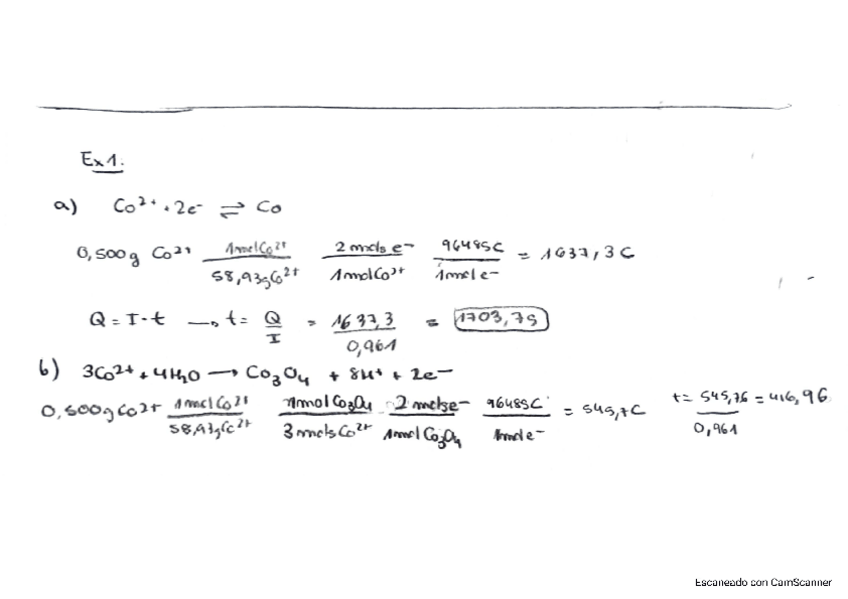 Ex1.
a) Co²⁺ + 2e⁻ ⇌ Co
0,500g Co²⁺ 1mol Co²⁺/58,93g Co²⁺ 2 mols e⁻/1mol Co²⁺ 96485C/1mol e⁻ = 1637,3C
Q = I·t → t = Q/I = 1637,3/0,961 = 1703,7s
b) 3Co²⁺ + 4H₂O → Co₃O₄ + 8H⁺ + 2e⁻
0,500g Co²⁺ 1mol Co²⁺/58,93g Co²⁺ 1mol Co₃O₄/3 mols Co²⁺ 2 mols e⁻/1mol Co₃O₄ 96485C/1mol e⁻ = 545,7C t = 545,76/0,961 = 416,96
Escaneado con CamScanner